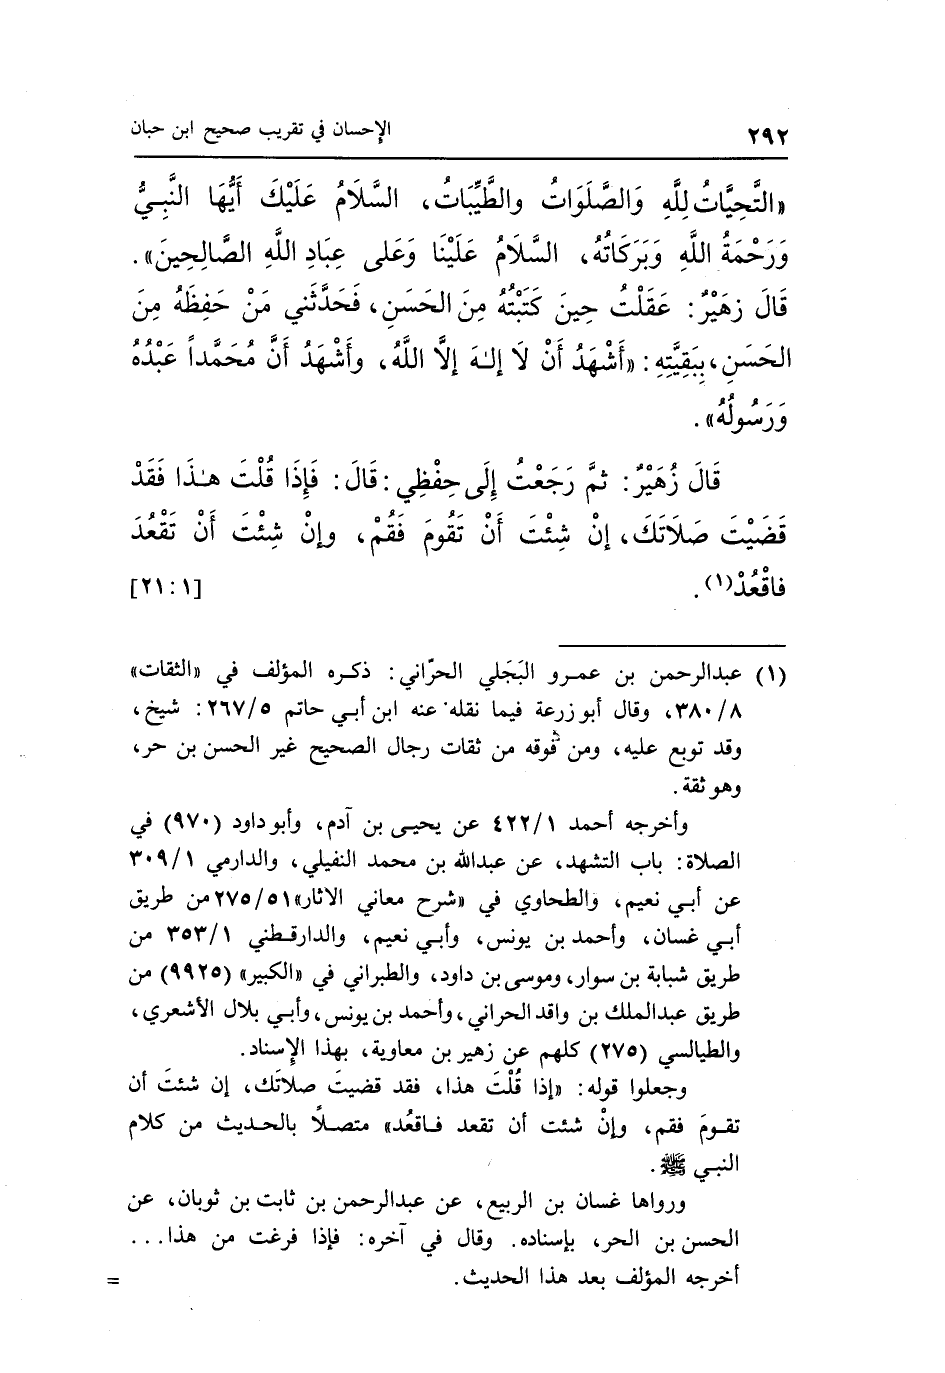 ٢٩٢ الإحسان في تقريب صحيح ابن حبان
«التَّحِيَّاتُ لِلَّهِ وَالصَّلَوَاتُ والطَّيِّبَاتُ، السَّلَامُ عَلَيْكَ أَيُّهَا النَّبِيُّ
وَرَحْمَةُ اللَّهِ وَبَرَكَاتُهُ، السَّلَامُ عَلَيْنَا وَعَلى عِبَادِ اللَّهِ الصَّالِحِينَ».
قَالَ زهَيْرٌ: عَقَلْتُ حِينَ كَتَبْتُهُ مِنَ الحَسَنِ، فَحَدَّثَني مَنْ حَفِظَهُ مِنَ
الحَسَنِ، بِبَقِيَّتِهِ: «أَشْهَدُ أَنْ لَا إلهَ إلاَّ اللَّهُ، وأَشْهَدُ أَنَّ مُحَمَّداً عَبْدُهُ
وَرَسُولُهُ».
قَالَ زُهَيْرٌ: ثمَّ رَجَعْتُ إِلَى حِفْظِي: قَالَ: فَإِذَا قُلْتَ هذَا فَقَدْ
قَضَيْتَ صَلَاتَكَ، إنْ شِئْتَ أَنْ تَقُومَ فَقُمْ، وإنْ شِئْتَ أَنْ تَقْعُدَ
فاقْعُدْ(١). [٢١:١]
(١) عبدالرحمن بن عمرو البَجَلي الحرّاني: ذكره المؤلف في «الثقات»
٣٨٠/٨، وقال أبو زرعة فيما نقله عنه ابن أبي حاتم ٢٦٧/٥: شيخ،
وقد توبع عليه، ومن فوقه من ثقات رجال الصحيح غير الحسن بن حر،
وهو ثقة.
وأخرجه أحمد ٤٢٢/١ عن يحيى بن آدم، وأبو داود (٩٧٠) في
الصلاة: باب التشهد، عن عبدالله بن محمد النفيلي، والدارمي ٣٠٩/١
عن أبي نعيم، والطحاوي في «شرح معاني الاثار»٢٧٥/٥١ من طريق
أبي غسان، وأحمد بن يونس، وأبي نعيم، والدارقطني ٣٥٣/١ من
طريق شبابة بن سوار، وموسى بن داود، والطبراني في «الكبير» (٩٩٢٥) من
طريق عبدالملك بن واقد الحراني، وأحمد بن يونس، وأبي بلال الأشعري،
والطيالسي (٢٧٥) كلهم عن زهير بن معاوية، بهذا الإسناد.
وجعلوا قوله: «إذا قُلْتَ هذا، فقد قضيتَ صلاتَك، إن شئتَ أن
تقومَ فقم، وإنْ شئت أن تقعد فاقعُد» متصلاً بالحديث من كلام
النبي ﷺ.
ورواها غسان بن الربيع، عن عبدالرحمن بن ثابت بن ثوبان، عن
الحسن بن الحر، بإسناده. وقال في آخره: فإذا فرغت من هذا...
أخرجه المؤلف بعد هذا الحديث. =